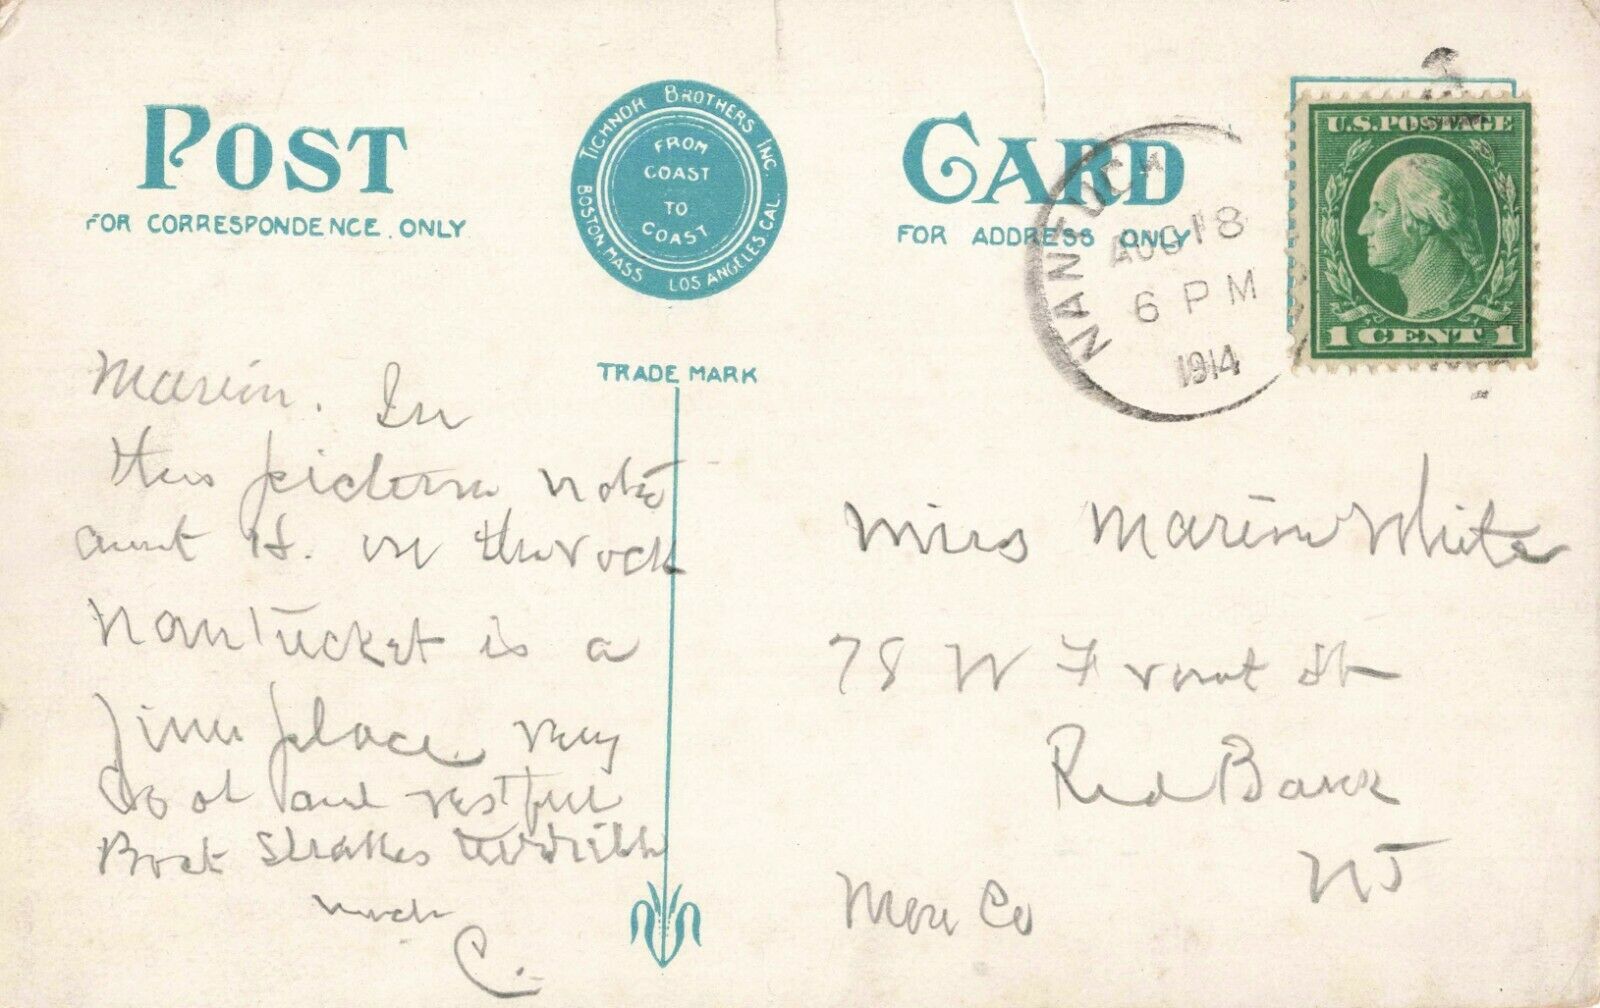 POST CARD
FOR CORRESPONDENCE ONLY
TICHNOR BROTHERS INC.
BOSTON MASS. LOS ANGELES CAL.
FROM
COAST
TO
COAST
TRADE MARK
FOR ADDRESS ONLY
NANTUCK
AUG 18
6 PM
1914
U.S. POSTAGE
1 CENT 1
Marion. In
this picture note
aunt H. on the rock
Nantucket is a
fine place. very
cool and restful
Boat shakes
much
C.
Miss Marion White
78 W Front St
Red Bank
NJ
Mon Co